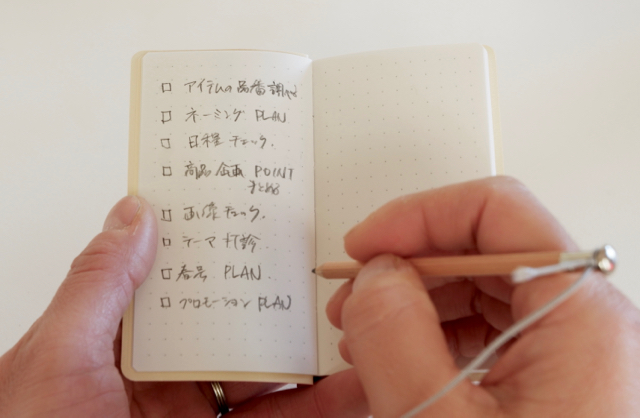 □ アイテムの品番調べ
□ ネーミング PLAN
□ 日程チェック.
□ 商品企画 POINT
まとめる
□ 画像チェック.
□ テーマ
□ 春号 PLAN.
□ プロモーション PLAN